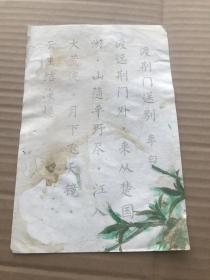 渡荆门送别 李白
渡远荆门外,来从楚国
游。山随平野尽,江入
大荒流。月下飞天镜,
云生结海楼